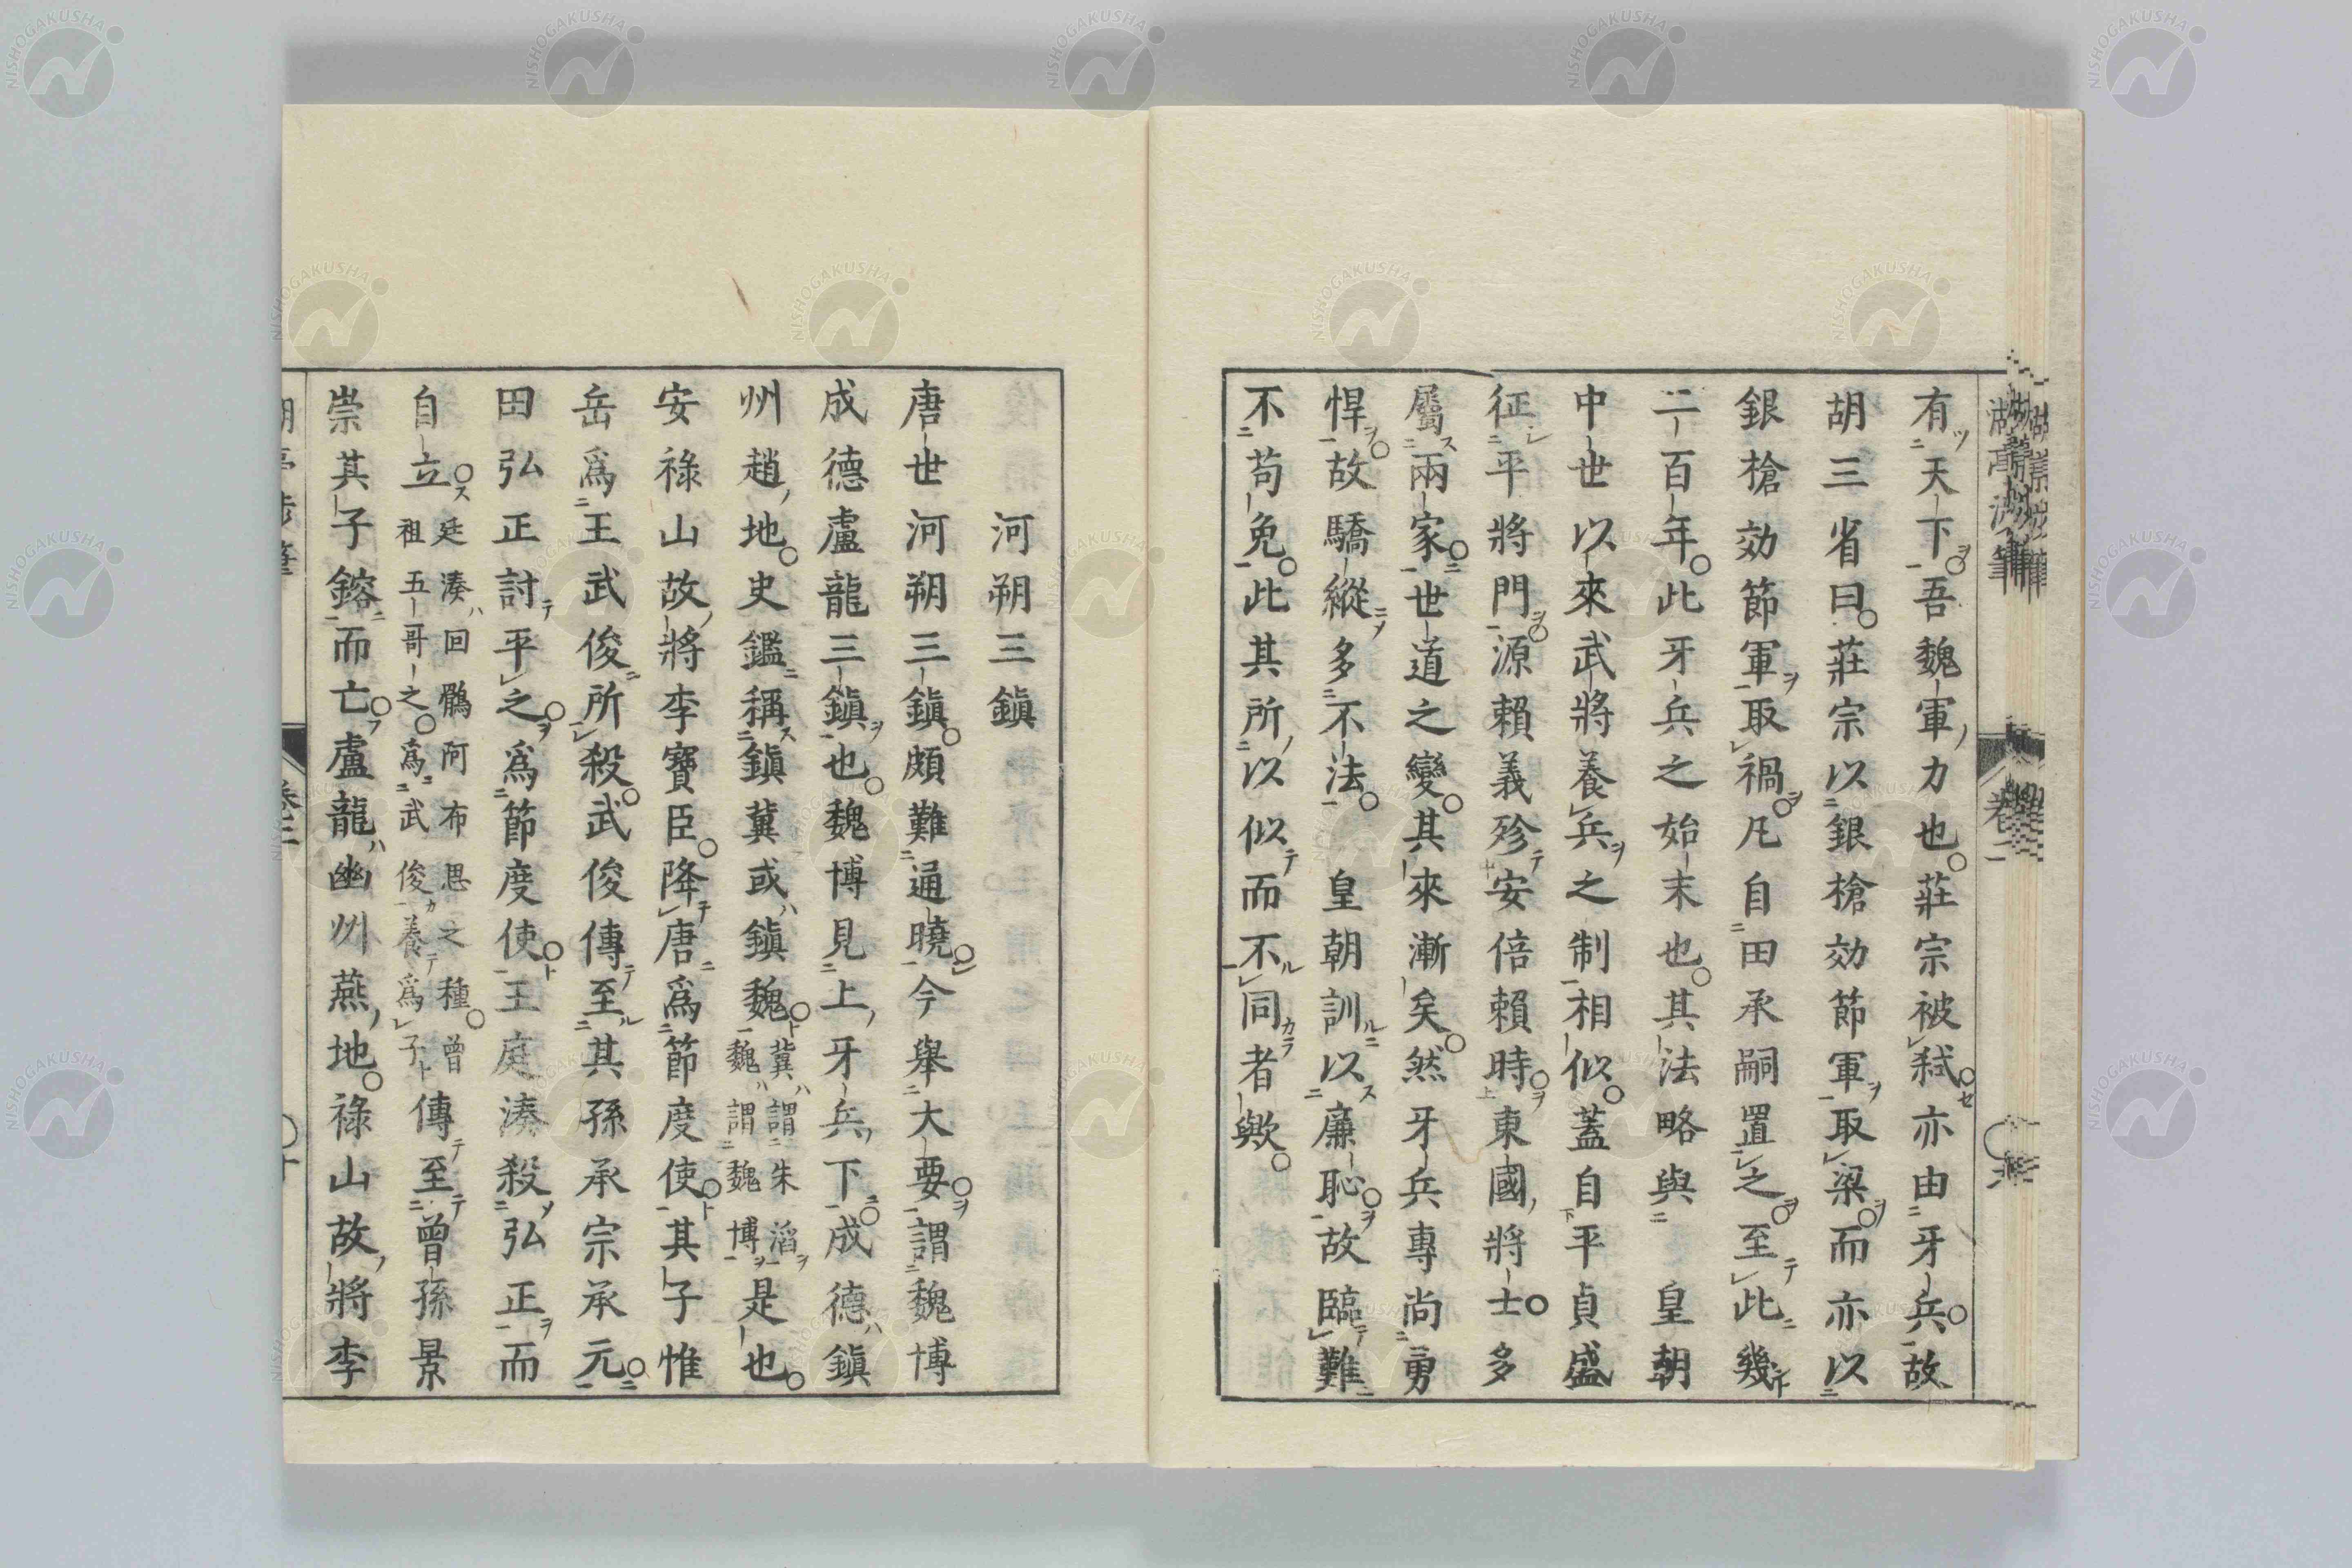 有天下吾魏軍力也莊宗被弑亦由牙兵故
胡三省曰莊宗以銀槍効節軍取梁而亦以
銀槍効節軍取禍凡自田承嗣置之至此幾
二百年此牙兵之始末也其法略與　皇朝
中世以來武將養兵之制相似蓋自平貞盛
征平將門源賴義殄安倍賴時東國將士多
屬兩家世道之變其來漸矣然牙兵專尚勇
悍故驕縱多不法　皇朝訓以廉恥故臨難
不苟免此其所以似而不同者歟
河朔三鎮
唐世河朔三鎮頗難通曉今舉大要謂魏博
成德盧龍三鎮也魏博見上牙兵下成德鎮
州趙地史鑑稱鎮冀或鎮魏冀謂朱滔魏謂魏博是也
安祿山故將李寶臣降唐爲節度使其子惟
岳爲王武俊所殺武俊傳至其孫承宗承元
田弘正討平之爲節度使王庭湊殺弘正而
自立廷湊回鶻阿布思之種曾祖五哥之爲武俊養爲子傳至曾孫景
崇其子鎔而亡盧龍幽州燕地祿山故將李
卷二
NISHOGAKUSHA